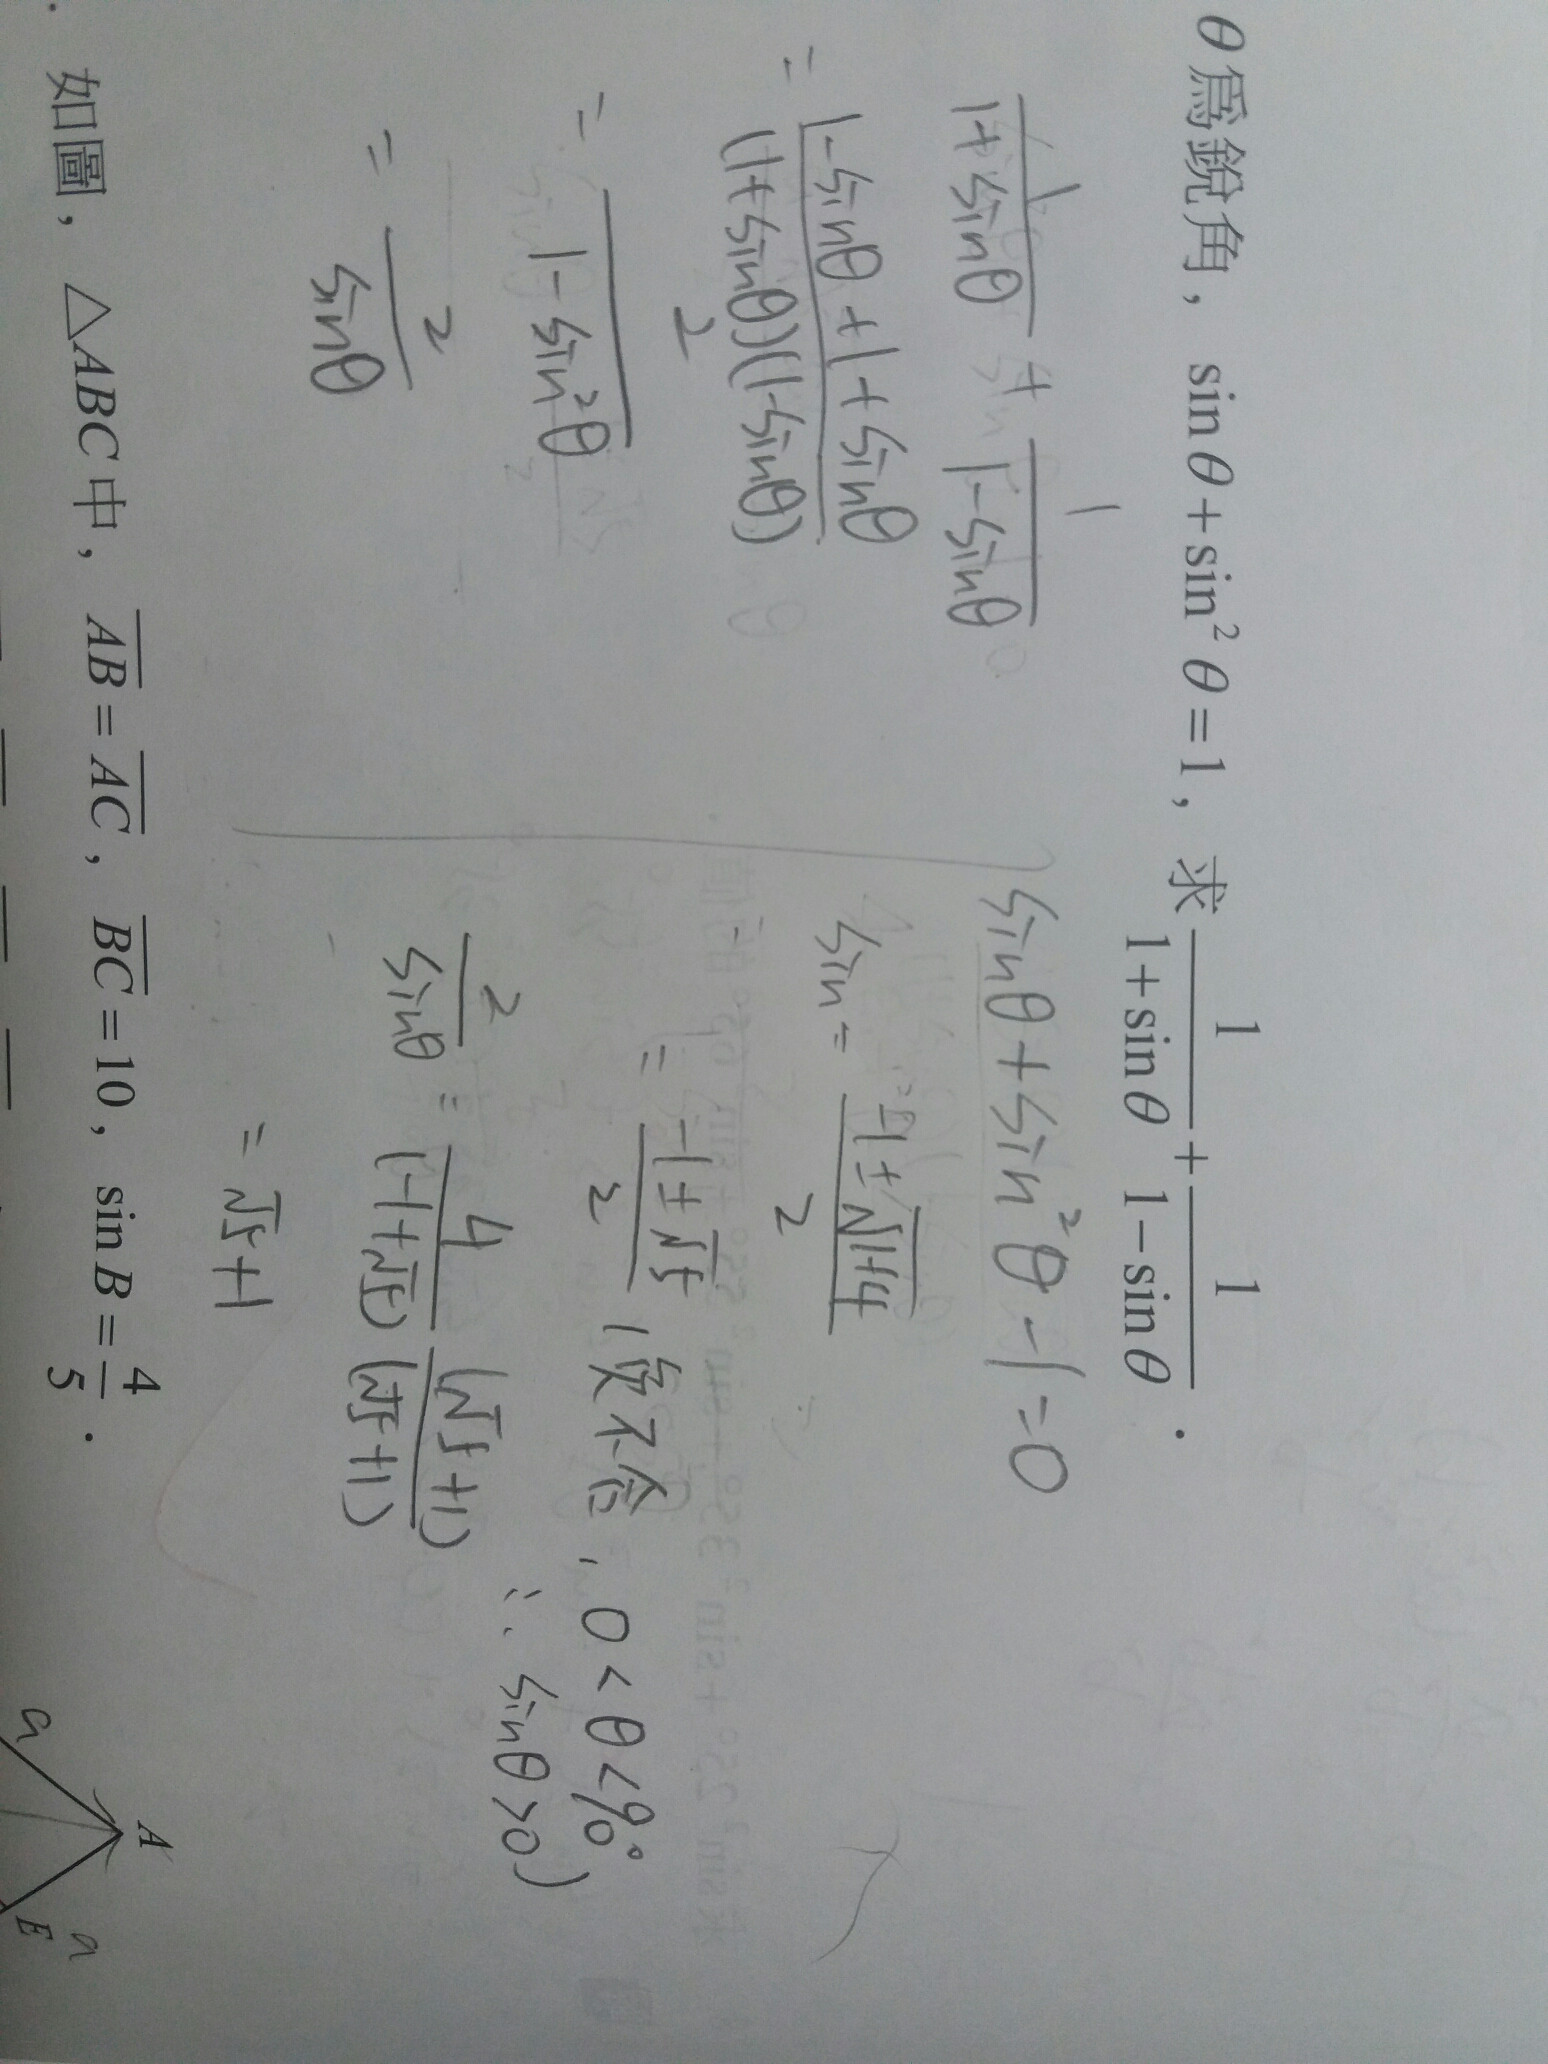 θ爲銳角，sinθ+sin²θ=1，求 1/(1+sinθ) + 1/(1−sinθ).
1/(1+sinθ) + 1/(1−sinθ)
= (1−sinθ+1+sinθ)/((1+sinθ)(1−sinθ))
= 2/(1−sin²θ)
= 2/sinθ
sinθ+sin²θ−1=0
sin = (−1±√(1+4))/2
= (−1±√5)/2 (負不合, 0<θ<90°
∴ sinθ>0)
2/sinθ = 4/(−1+√5) (√5+1)/(√5+1)
= √5+1
如圖，△ABC中，AB=AC，BC=10，sin B=4/5.
A
a
E
a